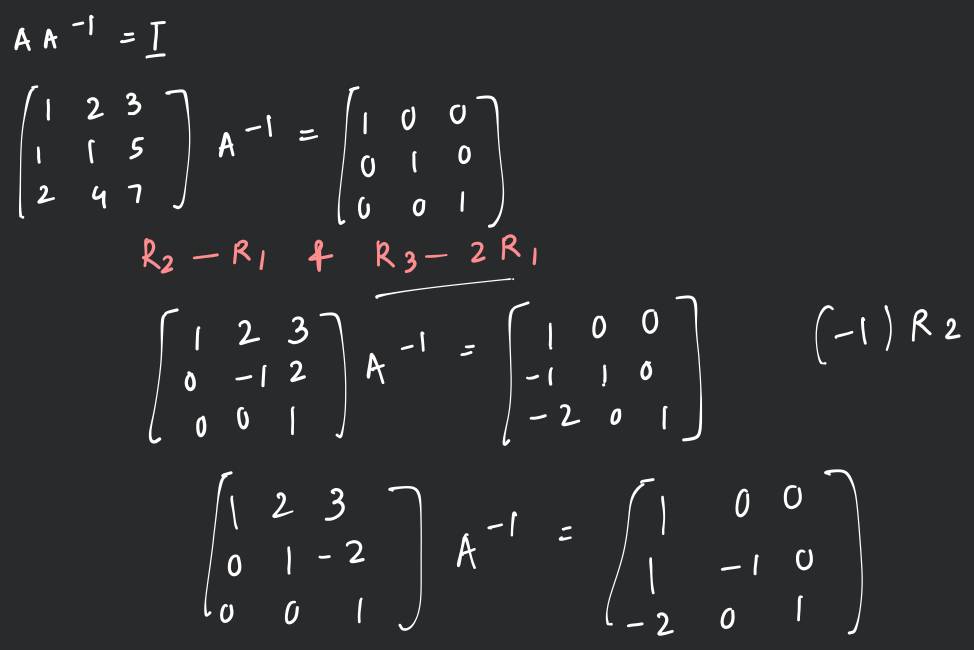 A A⁻¹ = I
1 2 3
1 1 5
2 4 7
A⁻¹ =
1 0 0
0 1 0
0 0 1
R₂ – R₁ & R₃ – 2 R₁
1 2 3
0 -1 2
0 0 1
A⁻¹ =
1 0 0
-1 1 0
-2 0 1
(-1) R₂
1 2 3
0 1 -2
0 0 1
A⁻¹ =
1 0 0
1 -1 0
-2 0 1